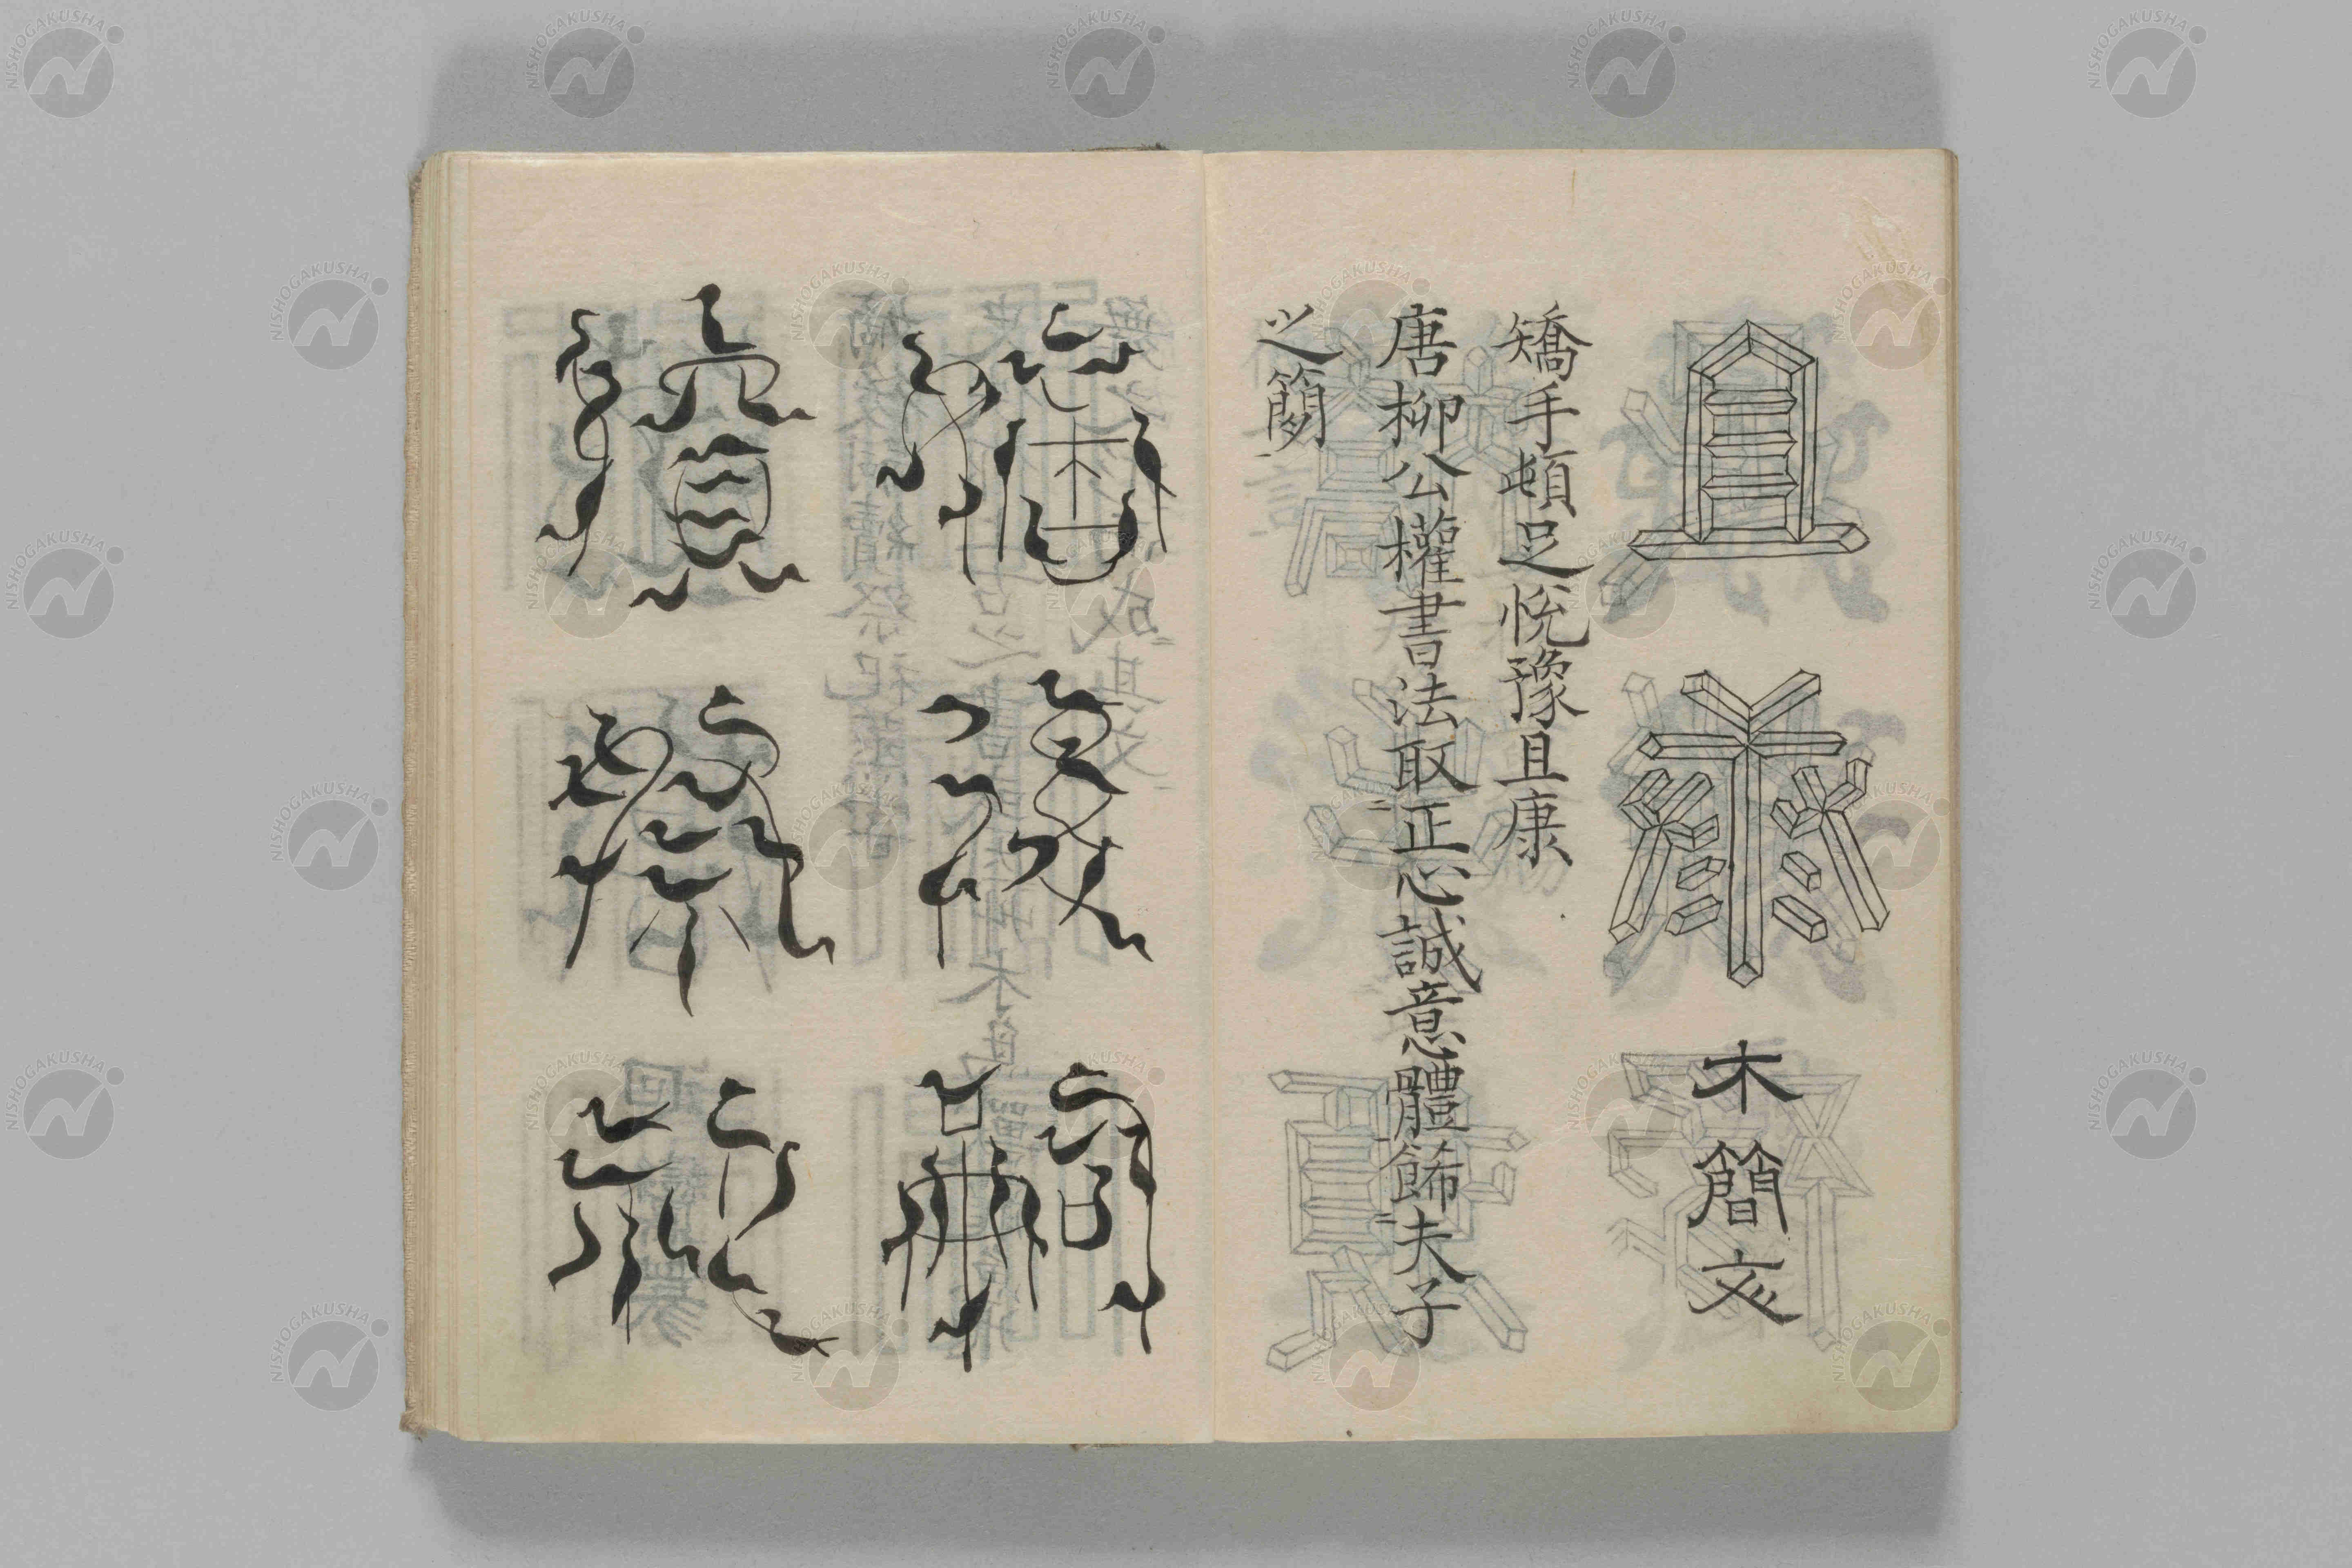 且康
木簡文
矯手頓足悅豫且康
唐柳公權書法取正心誠意體飾夫子
之簡
嫡後嗣
續祭祀
NISHOGAKUSHA